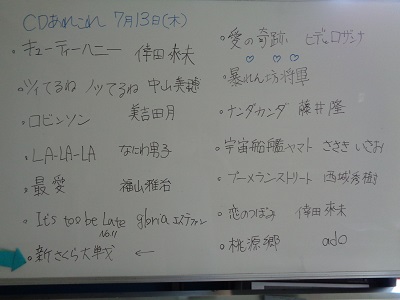 CDあれこれ 7月13日(木)
・キューティーハニー 倖田来未
・ツイてるね ノッてるね 中山美穂
・ロビンソン 美吉田月
・LA-LA-LA なにわ男子
・最愛 福山雅治
・It's too be Late gloria エステファン
・新さくら大戦 ←
・愛の奇跡 ヒデとロザンナ
・暴れん坊将軍
・ナンダカンダ 藤井隆
・宇宙船艦ヤマト ささきいさお
・ブーメランストリート 西城秀樹
・恋のつぼみ 倖田来未
・桃源郷 ado